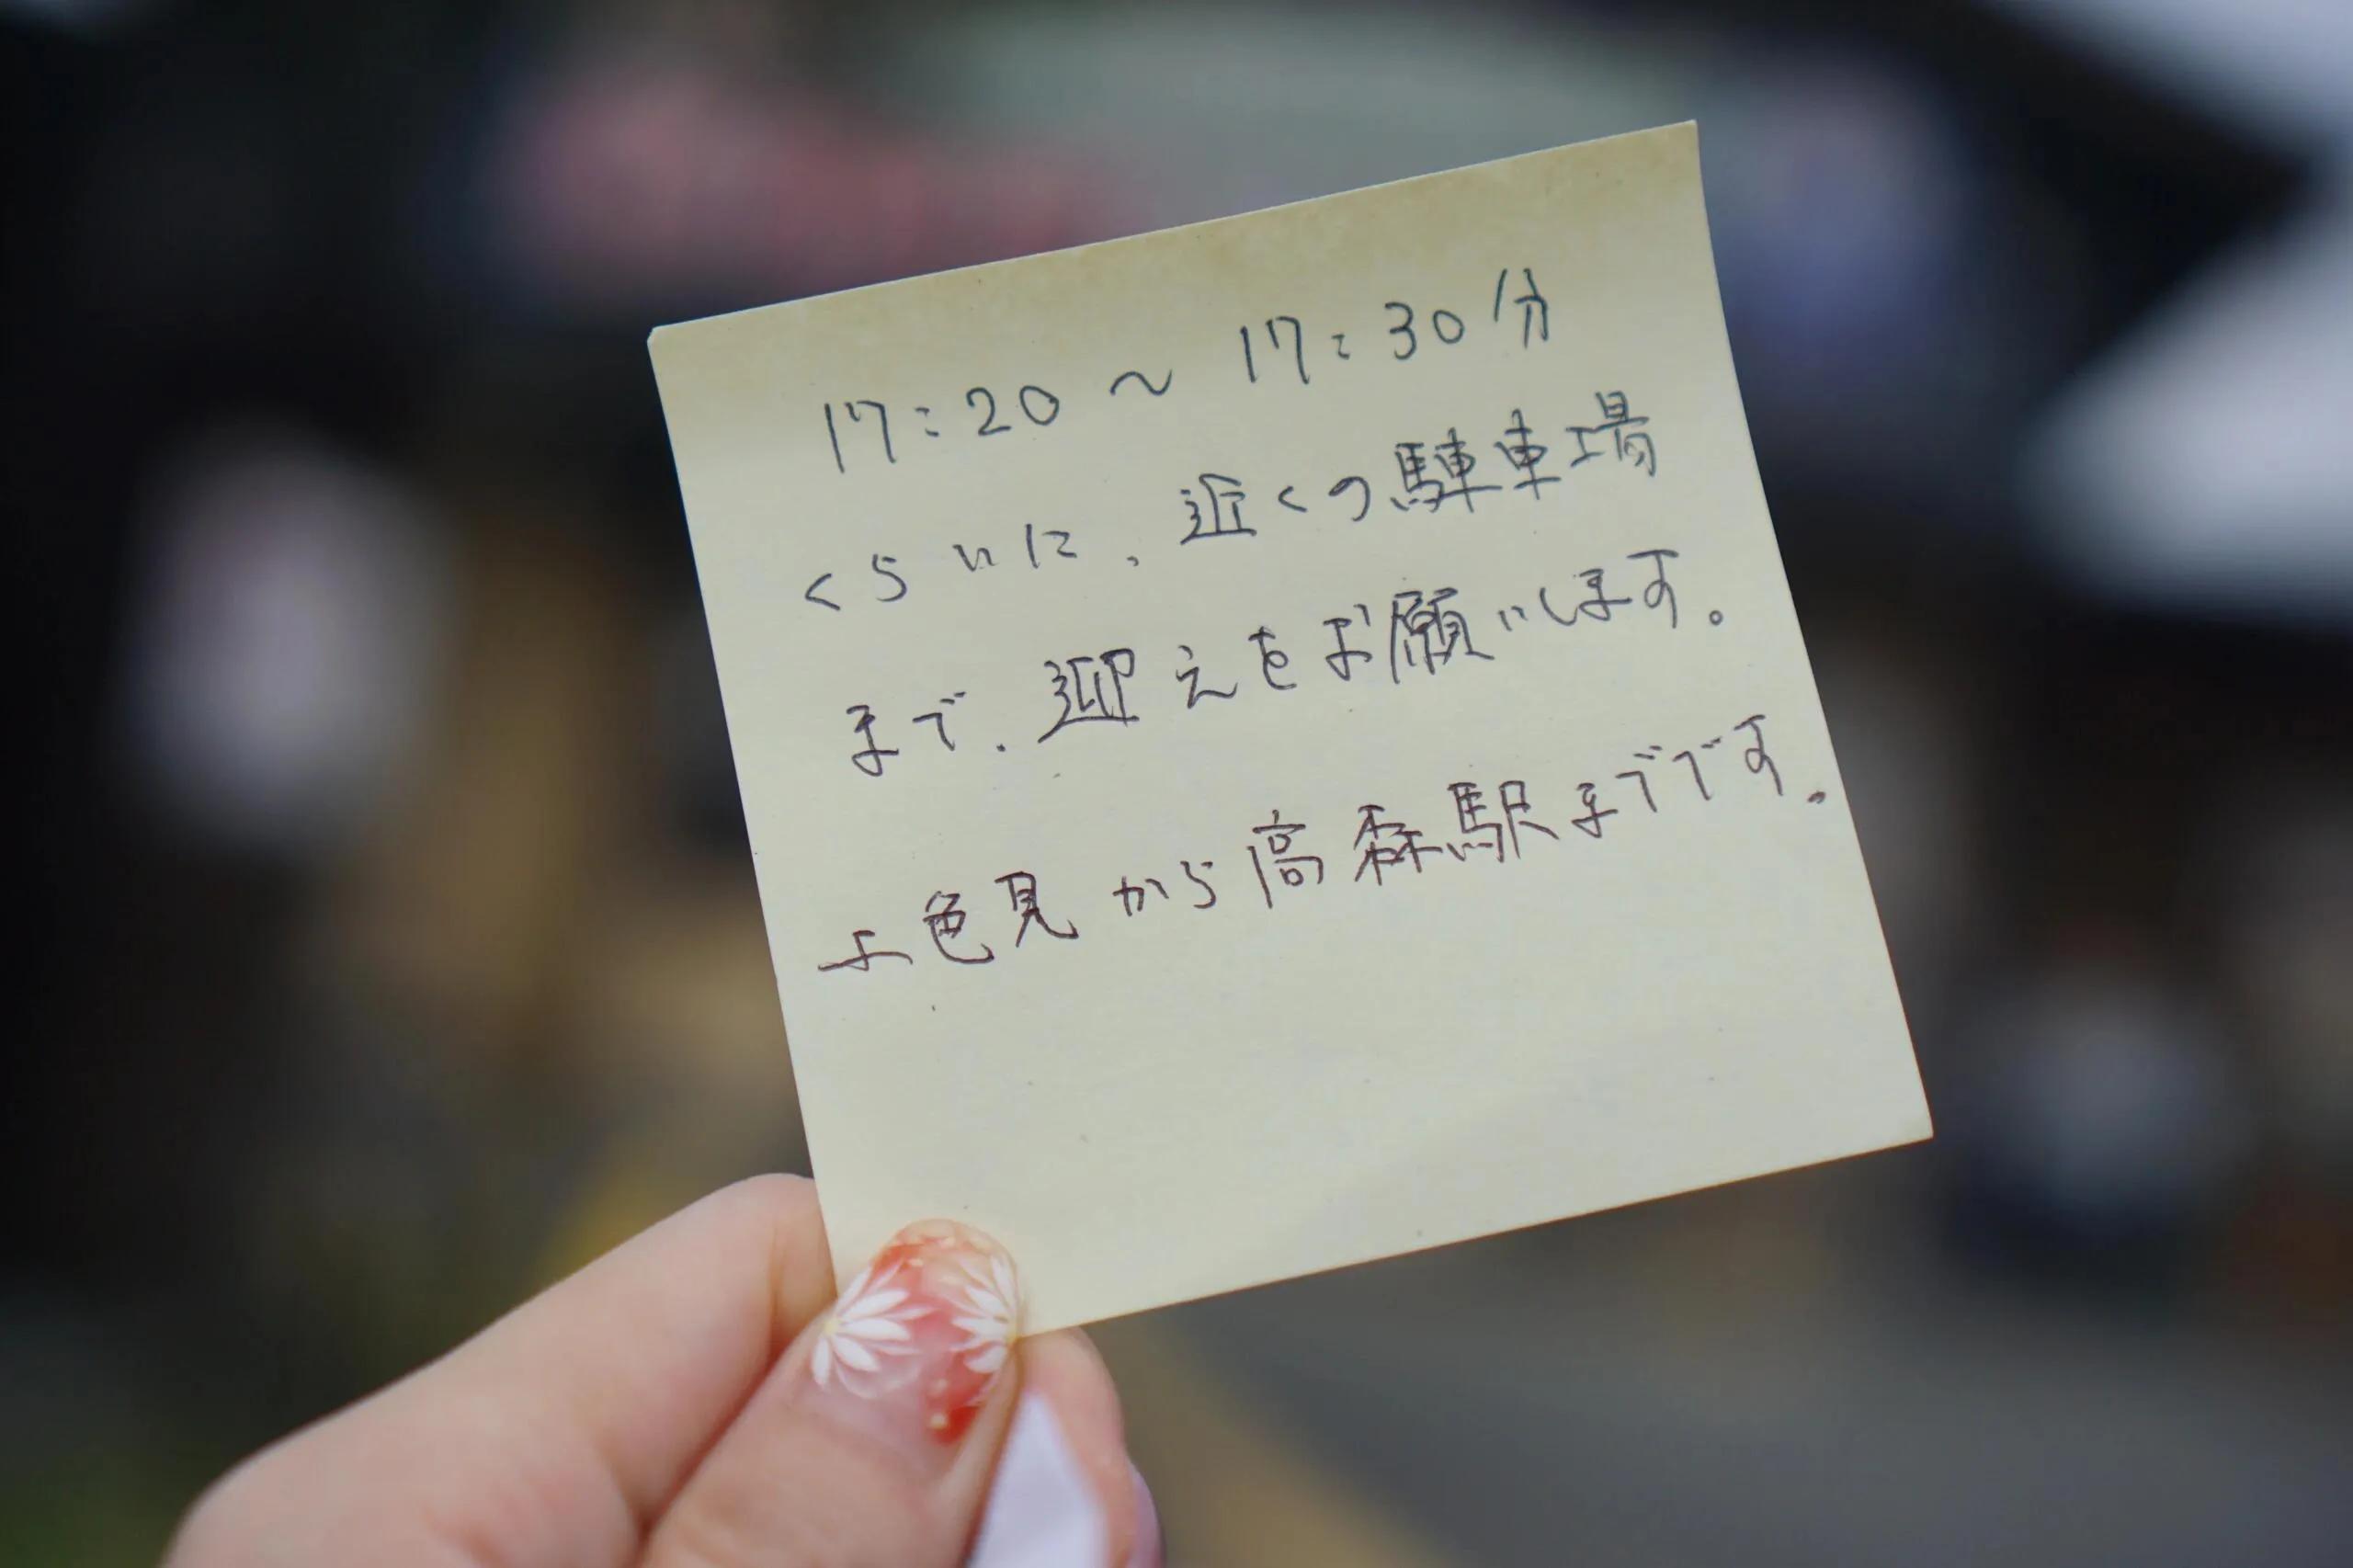 17:20 ~ 17:30分
くらいに、近くの駐車場
まで、迎えをお願いします。
上色見から高森駅までです。